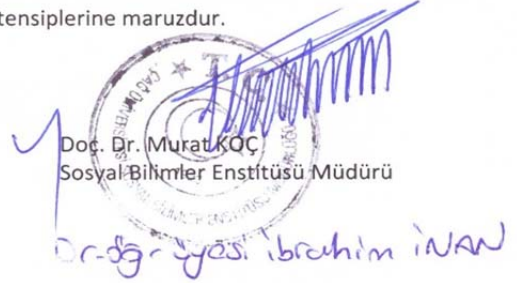 tensiplerine maruzdur.
T.C.
ÇAĞ ÜNİVERSİTESİ
Doç. Dr. Murat KOÇ
Sosyal Bilimler Enstitüsü Müdürü
Dr. Öğr. Üyesi İbrahim İNAN